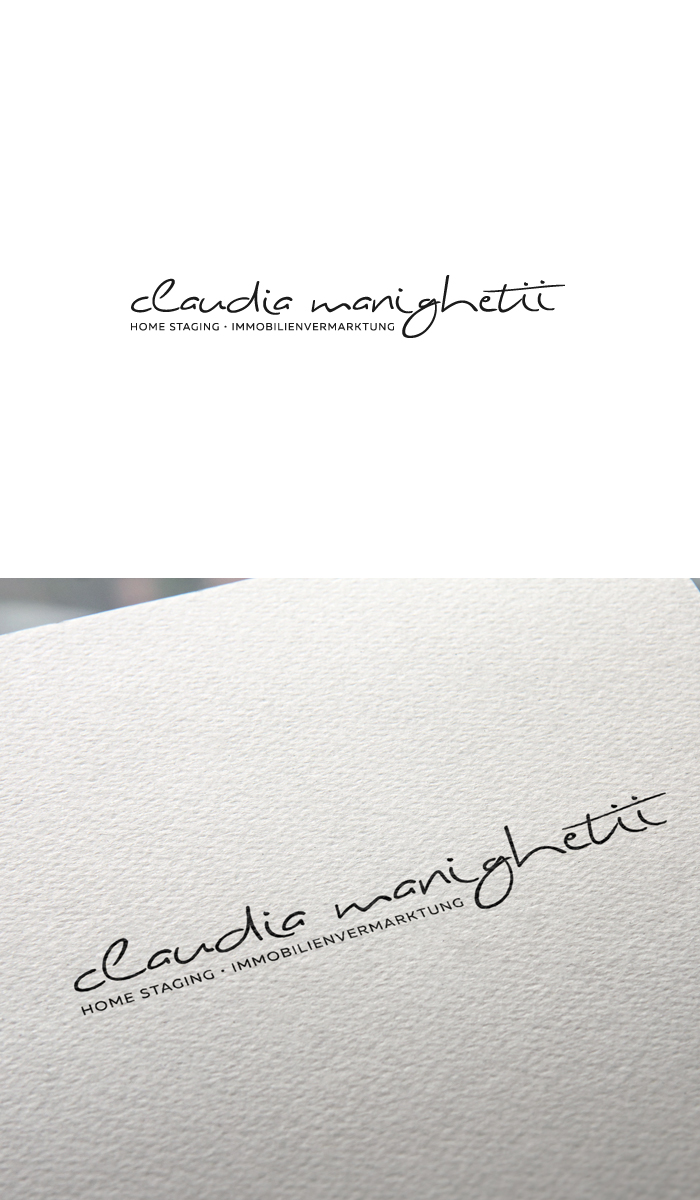 claudia manighetii
HOME STAGING · IMMOBILIENVERMARKTUNG
claudia manighetii
HOME STAGING · IMMOBILIENVERMARKTUNG